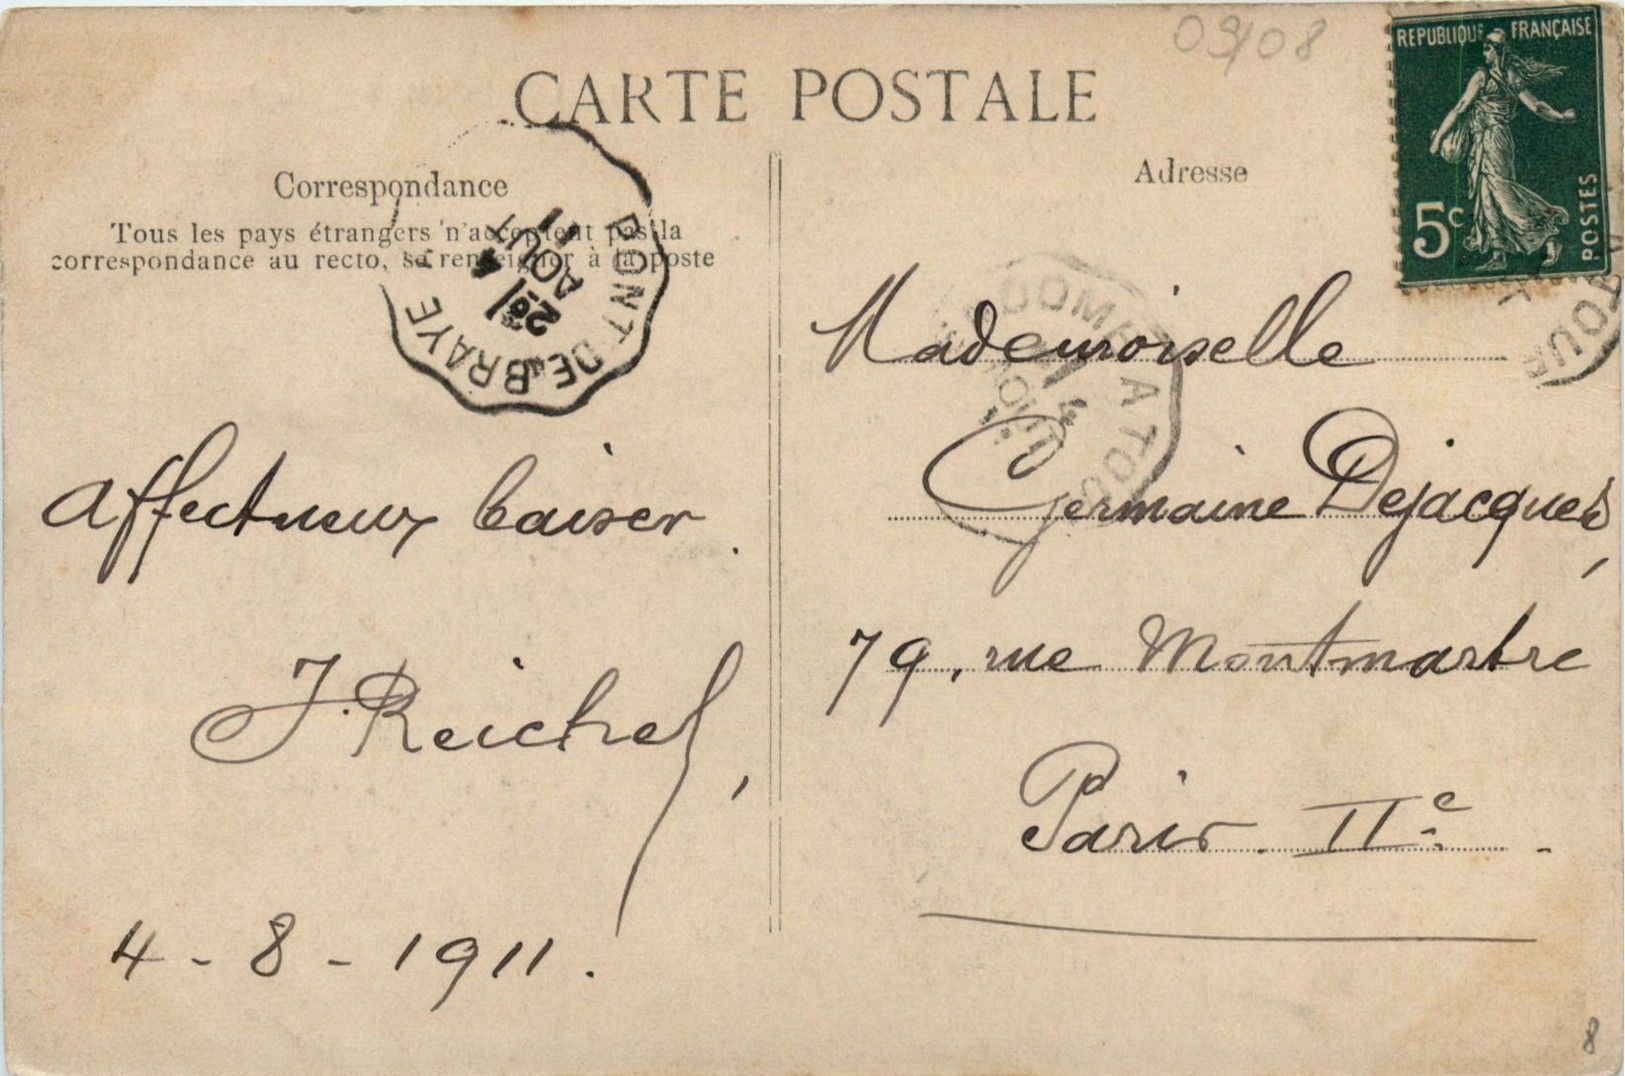 09/08
CARTE POSTALE
REPUBLIQUE FRANÇAISE
5c
POSTES
Correspondance
Tous les pays étrangers n'acceptent pas la
correspondance au recto, se renseigner à la poste
PONT DE BRAYE
4
AOUT
11
Affectueux baiser.
J. Reichel,
4-8-1911.
Adresse
VENDOME A TOURS
Mademoiselle
Germaine Dejacques,
79, rue Montmartre
Paris. IIe.
8